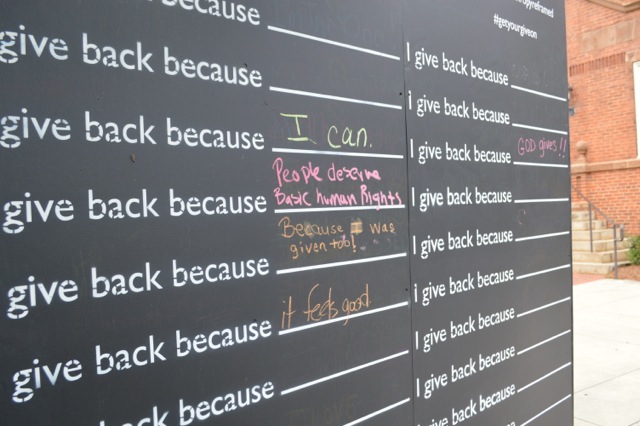 because
give back because
give back because I can.
give back because People deserve
Basic human Rights
give back because Because I was
given too!
give back because it feels good.
back because
#getyourgiveon
I give back because
I give back because
I give back because GOD gives!!
I give back because
I give back because
i give back because
I give back because
I give back because
I give back because